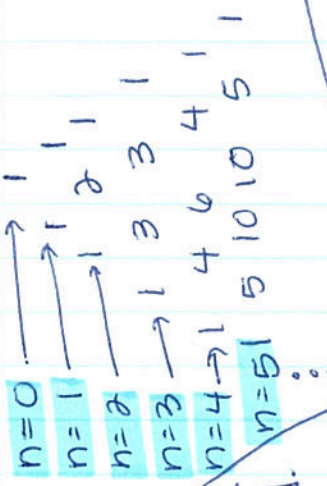 n=0 → 1
n=1 → 1 1
n=2 → 1 2 1
n=3 → 1 3 3 1
n=4 → 1 4 6 4 1
n=5 1 5 10 10 5 1